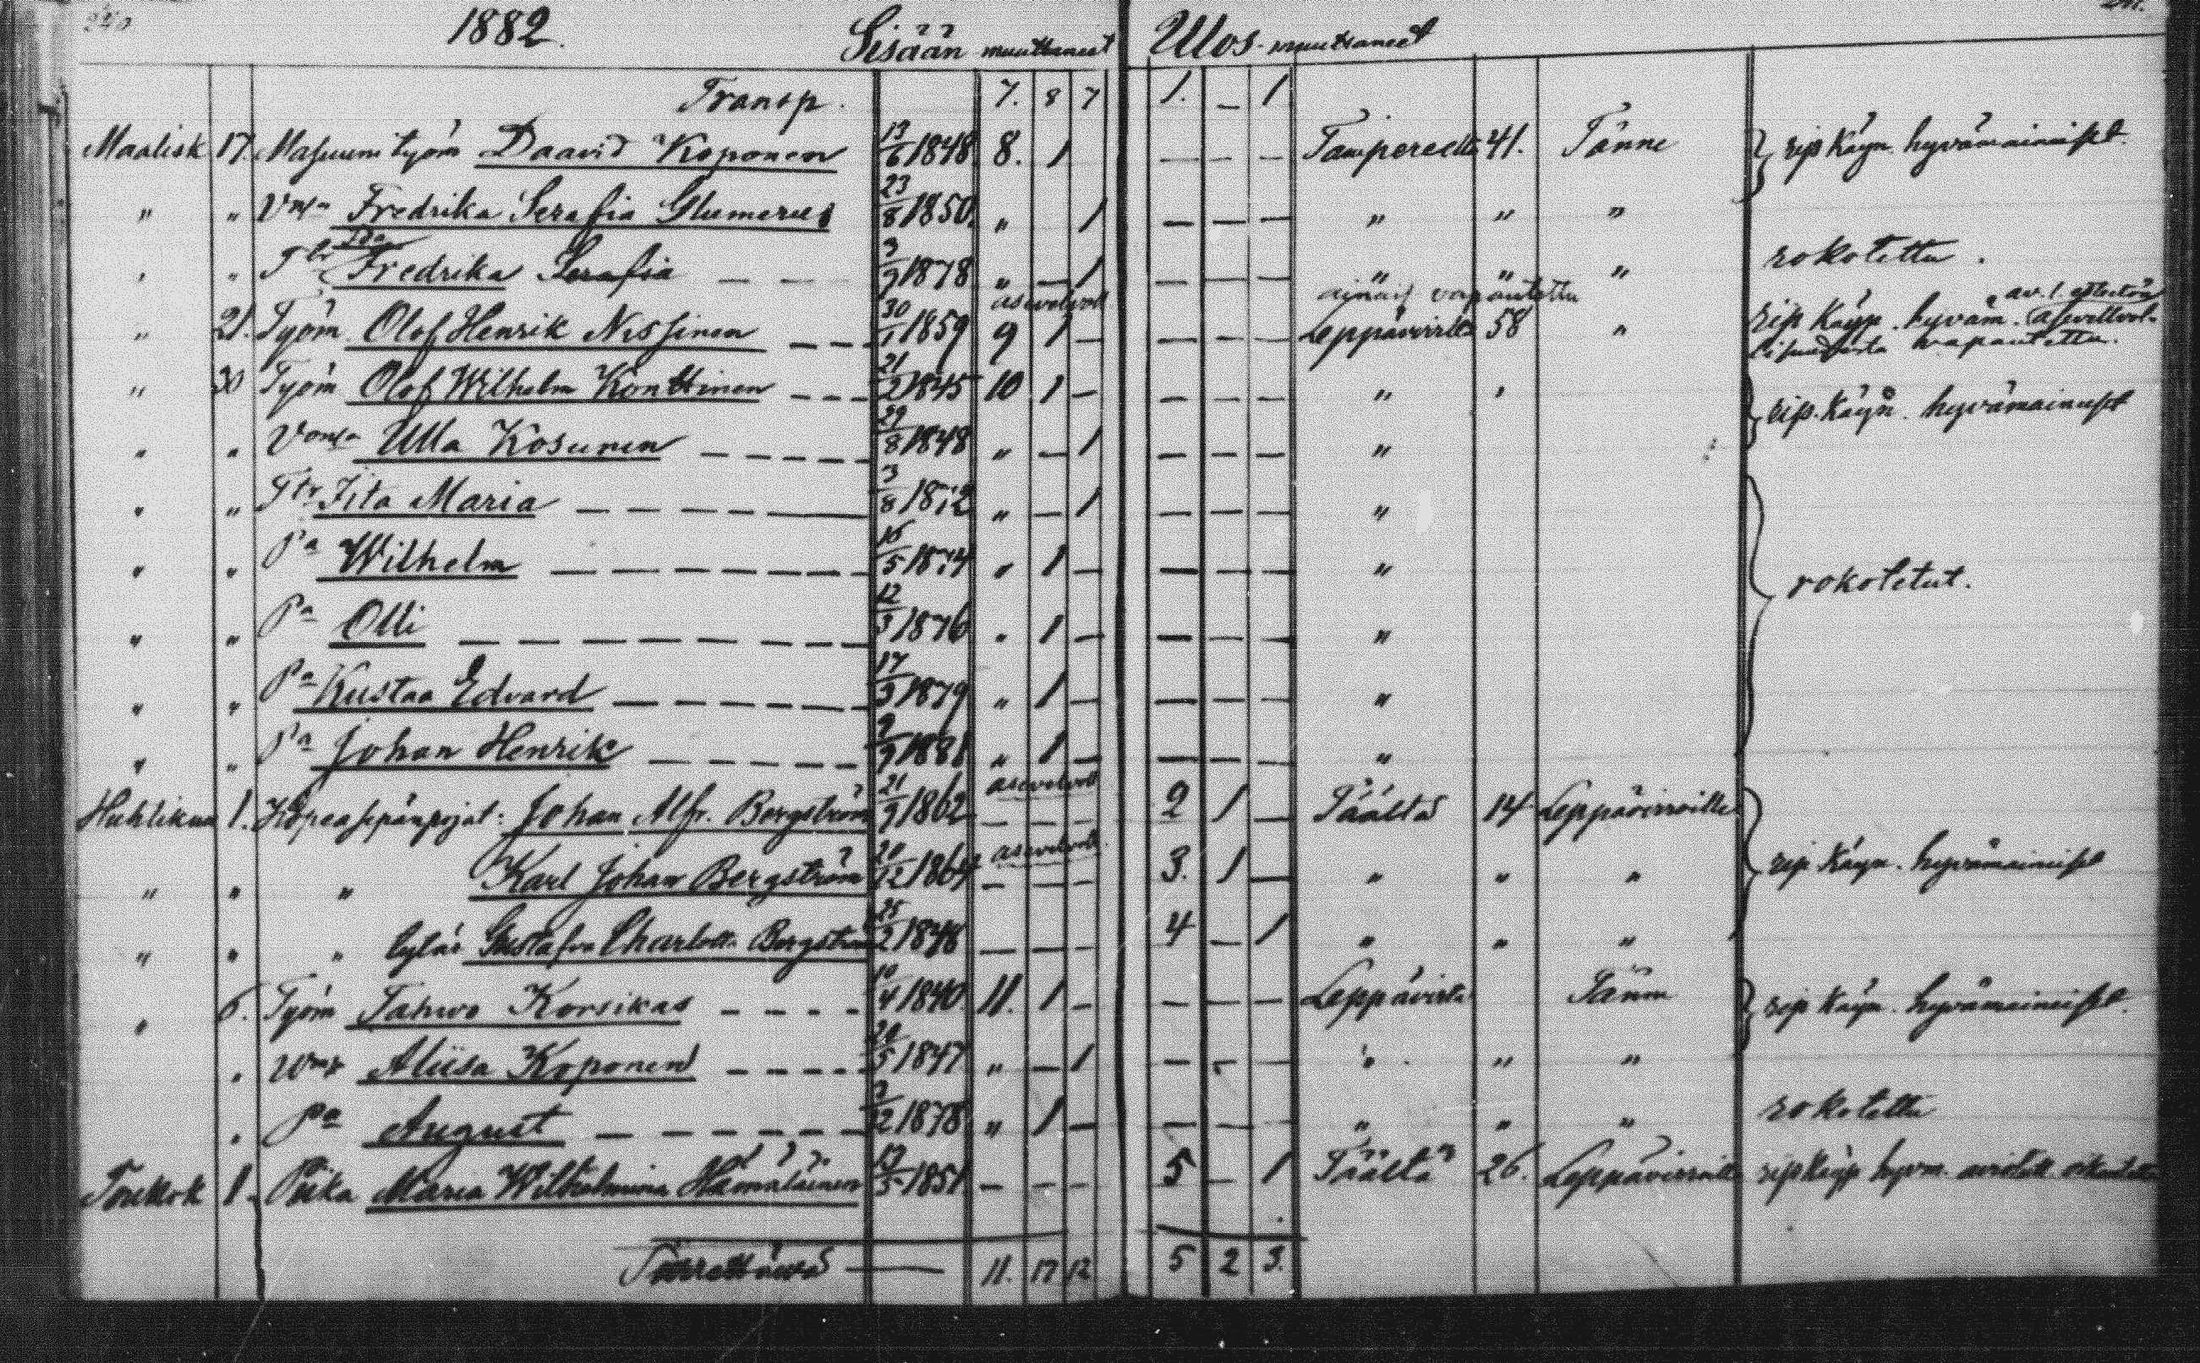 240 1882. Sisään muuttaneet Ulos muuttaneet 241.
Transp. 7. 8 7 1. — 1
Maalisk 17. Masuuni työm Daavid Koponen 13/6 1848 8. 1 — — — Tampereelta 41. Tänne rip käyn. hyvämainiset.
" " Vmo Fredrika Serafia Glumerus 23/8 1850 " 1 — — — " " "
" " Tr Ida Fredrika Serafia — — 3/9 1878 " — 1 — — — " " " rokotettu.
asevelvoll ainais vapautettu
" 21. Työm Olof Henrik Nissinen — — 30/1 1859 9 1 — — — — Leppävirrilta 58 " rip käyp. hyväm. asevelvol-
vapautettu.
" 30 Työm Olof Wilhelm Konttinen — — — 21/2 1845 10 1 — — — — " " rip. käyn. hyvämainiset
" " Vomo Ulla Kosunen — — — — 29/8 1848 " — 1 — — — "
" " Tr Iita Maria — — — — 3/8 1872 " — 1 — — — "
" " Pa Wilhelm — — — — — — 16/5 1874 " 1 — — — — " rokotetut.
" " Pa Olli — — — — — — — 12/3 1876 " 1 — — — — "
" " Pa Kustaa Edvard — — — — — 17/3 1879 " 1 — — — — "
" " Pa Johan Henrik — — — — 9/9 1881 " 1 — — — — "
asevelvoll
Huhtikuu 1. Kopeasepänpojat: Johan Alfr. Bergström 21/9 1862 — — — 2 1 Täältä 14 Leppävirroille
asevelvoll.
" " " Karl Johan Bergström 20/12 1864 — — — 3. 1 — " " " rip käyn. hyvämainiset
" " " Gustafva Charlotta Bergström 25/2 1848 — — — 4 — 1 " " "
" 6. Työm Tahvo Korsikas — — — — 10/4 1840. 11. 1 — — — — Leppävirta Tänne rip käyn. hyvämainiset.
" Vmo Aliisa Koponen — — — — 20/5 1847 " — 1 — — — " " "
" Pa August — — — — — 3/12 1878 " 1 — — — — " " " rokotettu
Toukok 1. Piika Maria Wilhelmiina Hämäläinen 13/5 1851 — — — 5 — 1 Täältä 26. Leppävirroille rip käyp hyvm.
Siirrettävä — 11. 17 12 5 2 3.